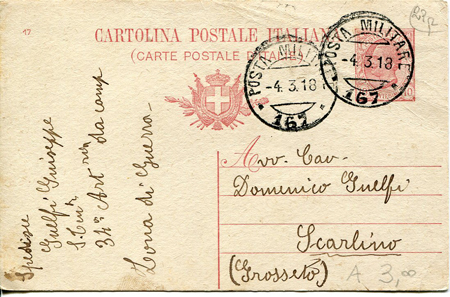 17
CARTOLINA POSTALE ITALIANA
(CARTE POSTALE D'ITALIE)
POSTA MILITARE
-4.3.18
167
POSTA MILITARE
-4.3.18
167
Avv. Cav.
Domenico Guelfi
Scarlino
(Grosseto)
A 3,00
Spedisce
Guelfi Giuseppe
S. Ten
34° Art da camp
Zona di Guerra